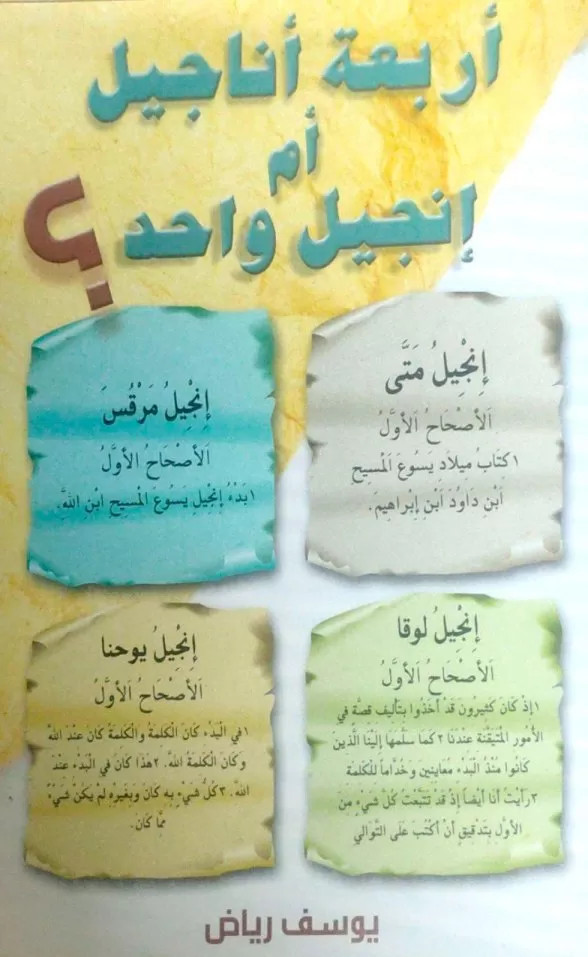 أربعة أناجيل
أم
إنجيل واحد ؟
إِنْجِيلُ مَتَّى
اَلأَصْحَاحُ الأَوَّلُ
١كِتَابُ مِيلاَدِ يَسُوعَ اَلْمَسِيحِ
اَبْنِ دَاوُدَ اَبْنِ إِبْراهِيمَ.
إِنْجِيلُ مَرْقُسَ
اَلأَصْحَاحُ الأَوَّلُ
١بَدْءُ إِنْجِيلِ يَسُوعَ الْمَسِيحِ ابْنِ اللَّهِ.
إِنْجِيلُ لُوقَا
اَلأَصْحَاحُ الأَوَّلُ
١إِذْ كَانَ كَثِيرُونَ قَدْ أَخَذُوا بِتَأْلِيفِ قِصَّةٍ فِي
الأُمُورِ الْمُتَيَقَّنَةِ عِنْدَنَا ٢كَمَا سَلَّمَهَا إِلَيْنَا الَّذِينَ
كَانُوا مُنْذُ الْبَدْءِ مُعَايِنِينَ وَخُدَّاماً لِلْكَلِمَةِ
٣رَأَيْتُ أَنَا أَيْضاً إِذْ قَدْ تَتَبَّعْتُ كُلَّ شَيْءٍ مِنَ
الأَوَّلِ بِتَدْقِيقٍ أَنْ أَكْتُبَ عَلَى التَّوَالِي
إِنْجِيلُ يوحنا
اَلأَصْحَاحُ الأَوَّلُ
١فِي الْبَدْءِ كَانَ الْكَلِمَةُ وَالْكَلِمَةُ كَانَ عِنْدَ اللَّهِ
وَكَانَ الْكَلِمَةُ اللَّهَ. ٢هَذَا كَانَ فِي الْبَدْءِ عِنْدَ
اللَّهِ. ٣كُلُّ شَيْءٍ بِهِ كَانَ وَبِغَيْرِهِ لَمْ يَكُنْ شَيْءٌ
مِمَّا كَانَ.
يوسف رياض